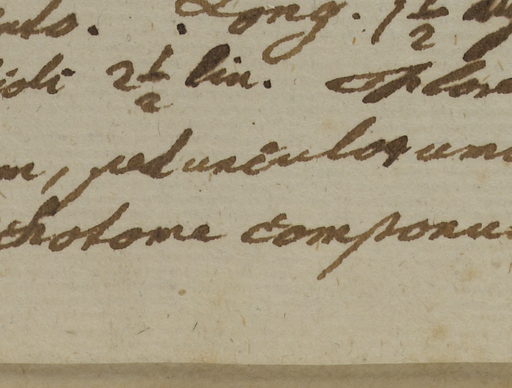 nts. . Long. 1½ di
ioli 2½ lin. Flore
m, pedunculorum
chotome componun